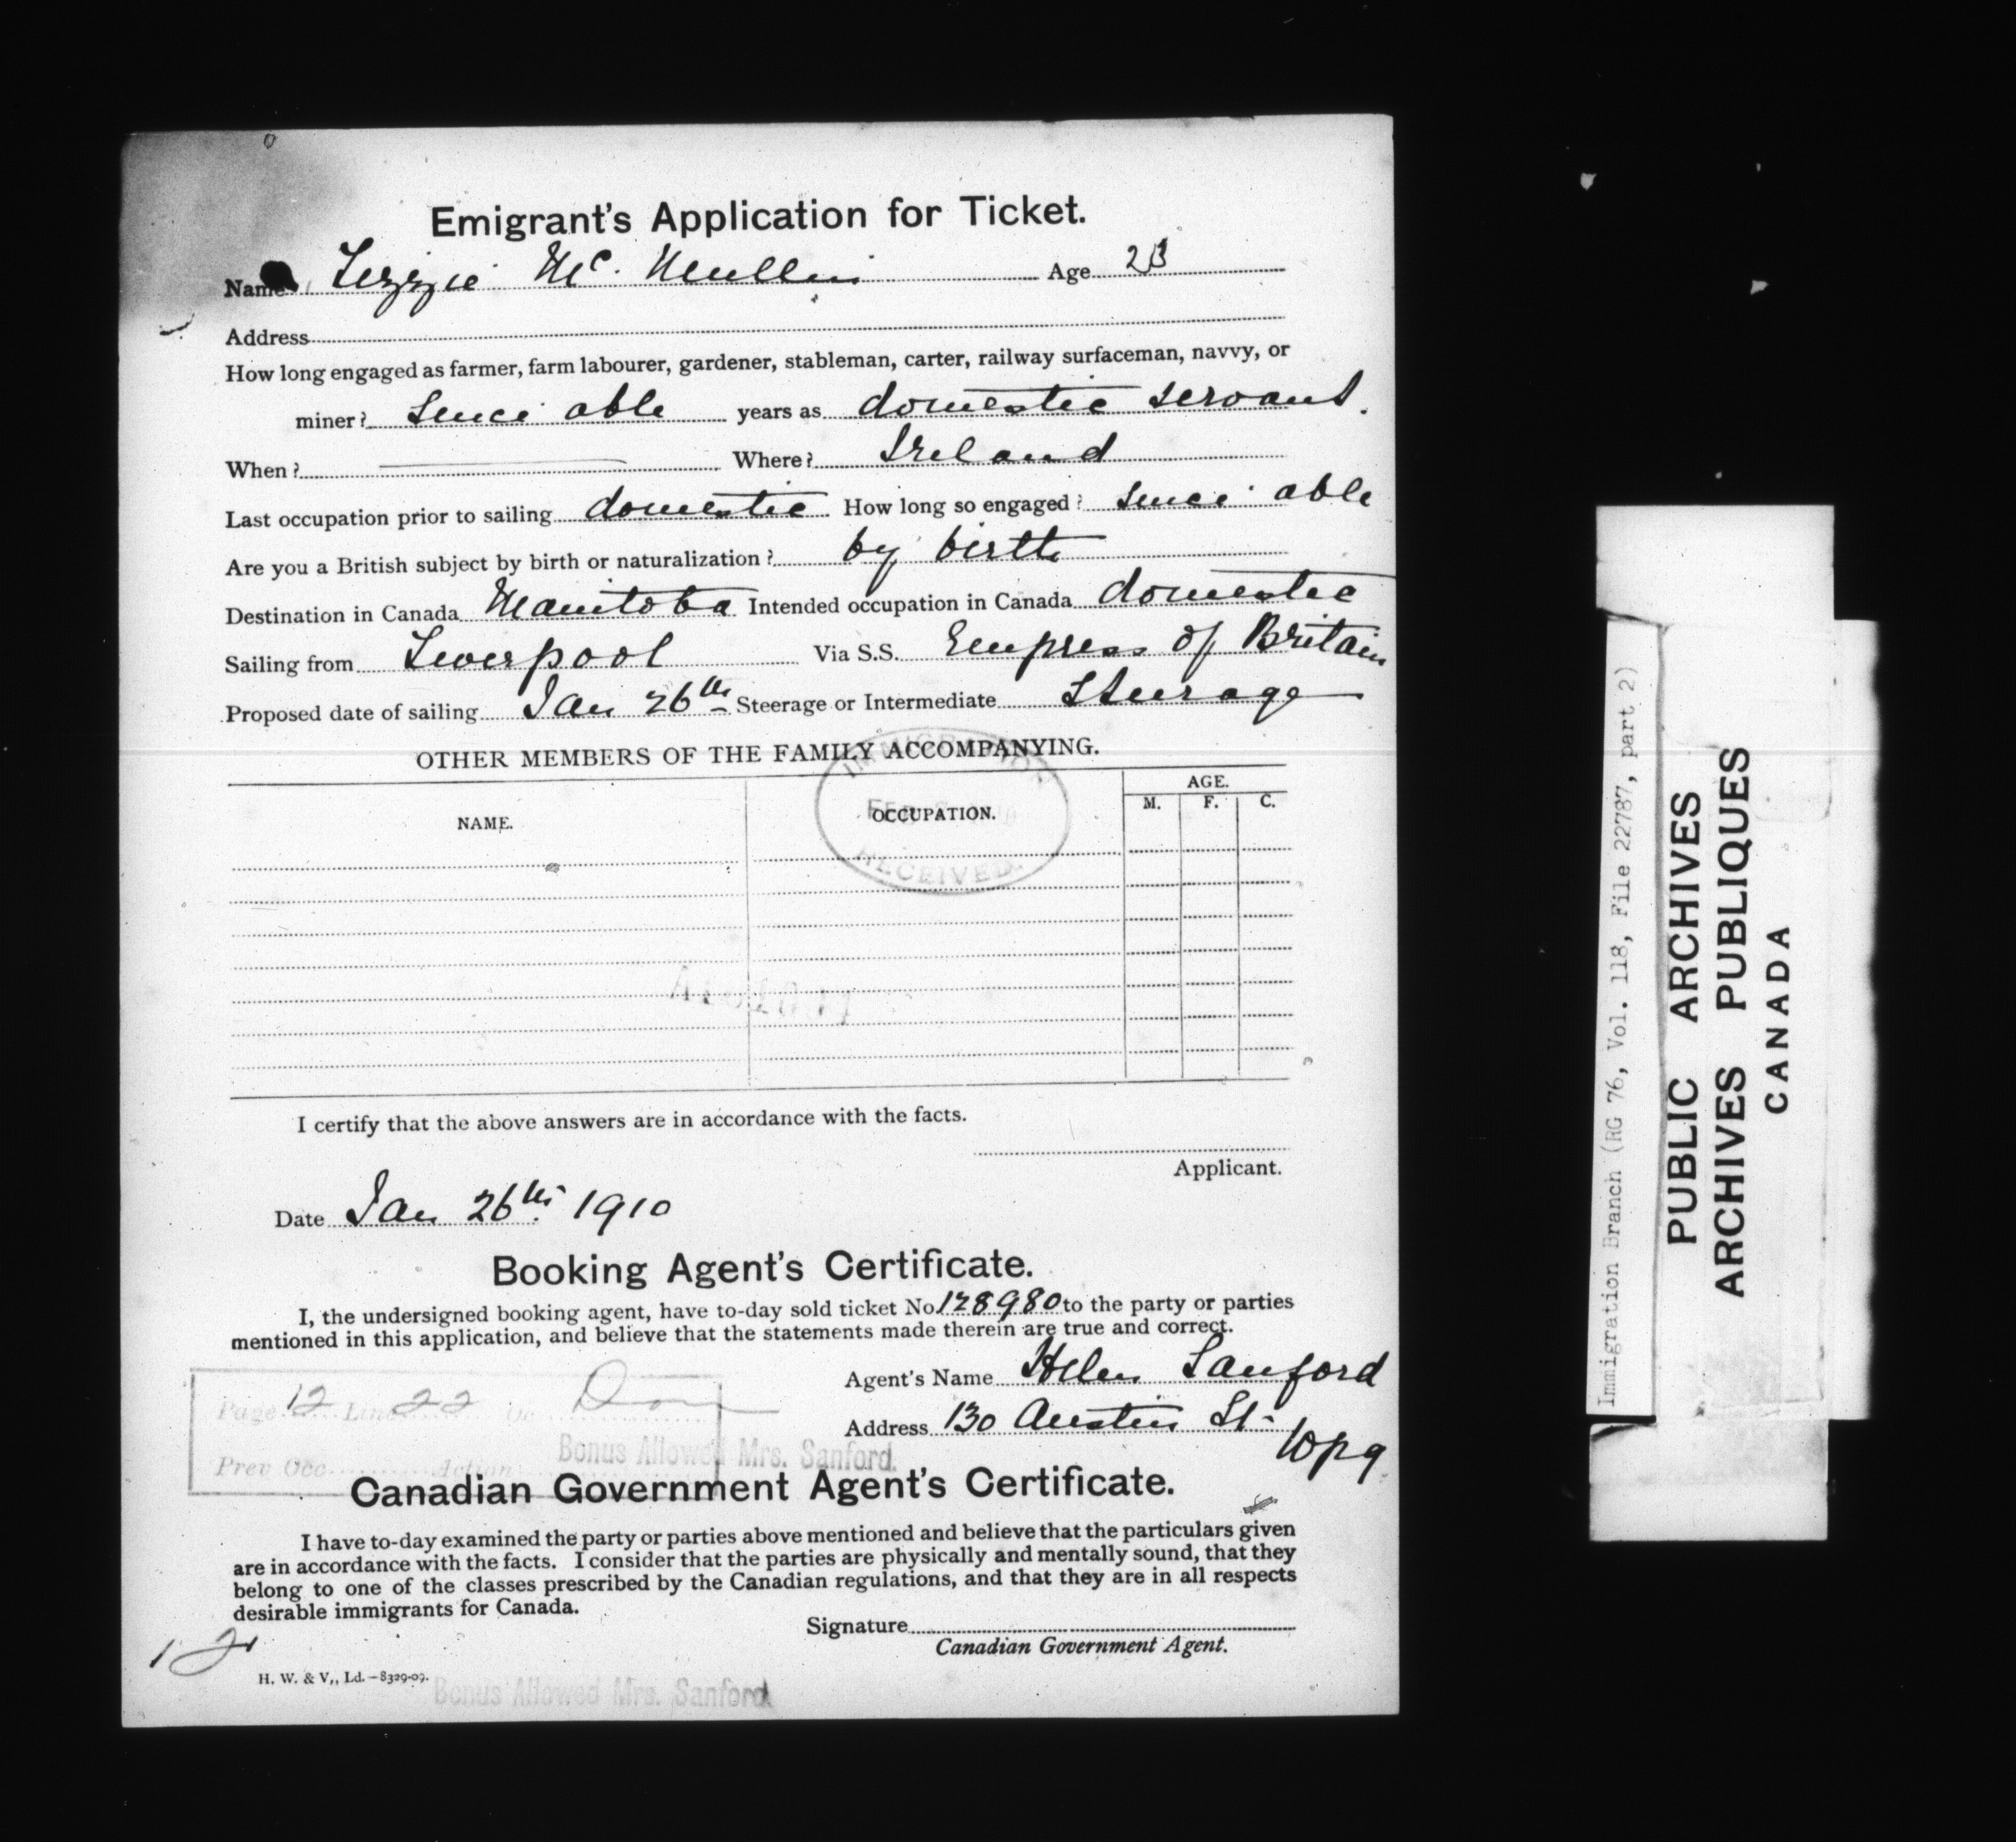 Emigrant's Application for Ticket.
Name Lizzie Mc. Mullin Age 23
Address
How long engaged as farmer, farm labourer, gardener, stableman, carter, railway surfaceman, navvy, or
miner? Since able years as domestic servant.
When? Where? Ireland
Last occupation prior to sailing domestic How long so engaged? since able
Are you a British subject by birth or naturalization? by birth
Destination in Canada Manitoba Intended occupation in Canada domestic
Sailing from Liverpool Via S.S. Empress of Britain
Proposed date of sailing Jan 26th Steerage or Intermediate Steerage
OTHER MEMBERS OF THE FAMILY ACCOMPANYING.
NAME. OCCUPATION. AGE.
M. F. C.
IMMIGRATION
RECEIVED.
I certify that the above answers are in accordance with the facts.
Applicant.
Date Jan 26th 1910
Booking Agent's Certificate.
I, the undersigned booking agent, have to-day sold ticket No 128980 to the party or parties
mentioned in this application, and believe that the statements made therein are true and correct.
Agent's Name Helen Sanford
Address 130 Austin St-
Wpg
Page 12 Line 22 Oc Dom
Prev Occ Action
Bonus Allowed Mrs. Sanford.
Canadian Government Agent's Certificate.
I have to-day examined the party or parties above mentioned and believe that the particulars given
are in accordance with the facts. I consider that the parties are physically and mentally sound, that they
belong to one of the classes prescribed by the Canadian regulations, and that they are in all respects
desirable immigrants for Canada.
Signature
Canadian Government Agent.
H. W. & V., Ld.—8329-09.
Bonus Allowed Mrs. Sanford
Immigration Branch (RG 76, Vol. 118, File 22787, part 2)
PUBLIC ARCHIVES
ARCHIVES PUBLIQUES
CANADA